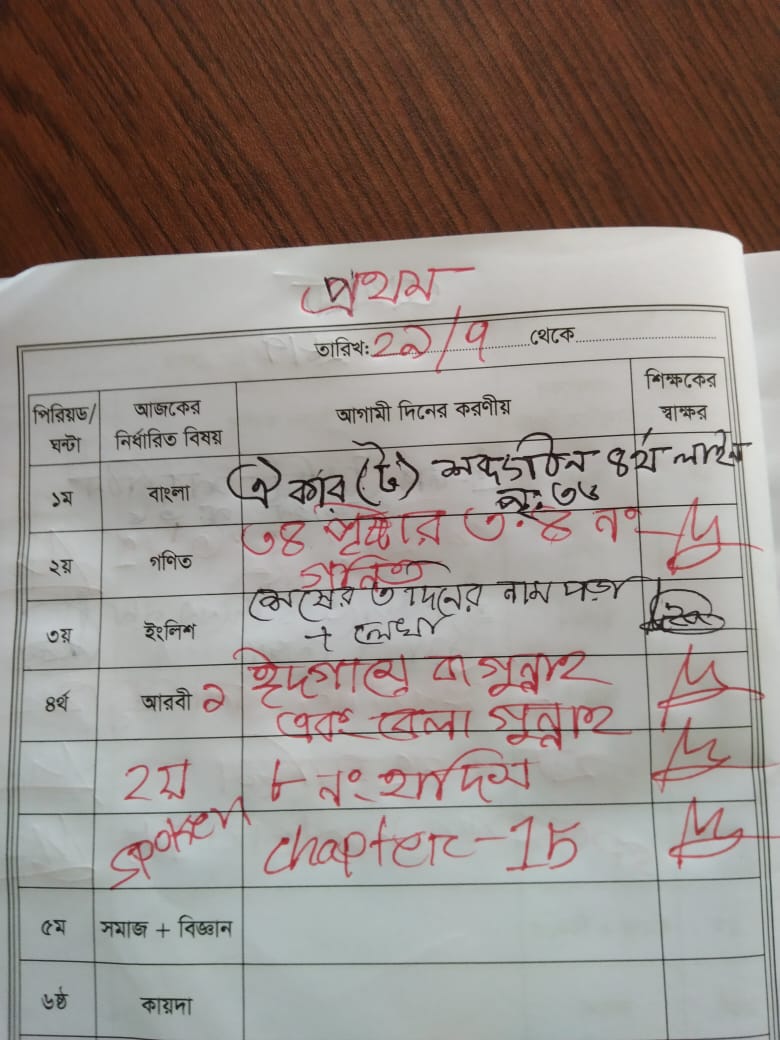 প্রথম
তারিখ: ২৯/৭ থেকে
পিরিয়ড/ঘন্টা আজকের নির্ধারিত বিষয় আগামী দিনের করণীয় শিক্ষকের স্বাক্ষর
১ম বাংলা ঐ কার (ৈ) শব্দগঠন ৪র্থ লাইন
পৃ: ৩৬
২য় গণিত ৩৪ পৃষ্টার ৩.৪ নং
গনিত
৩য় ইংলিশ শেষের ৩ দিনের নাম পড়া
+ লেখা
৪র্থ আরবী ১ ইদগামে বা গুন্নাহ
এবং বেলা গুন্নাহ
২য় ৮ নং হাদিস
spoken chapter-15
৫ম সমাজ + বিজ্ঞান
৬ষ্ঠ কায়দা